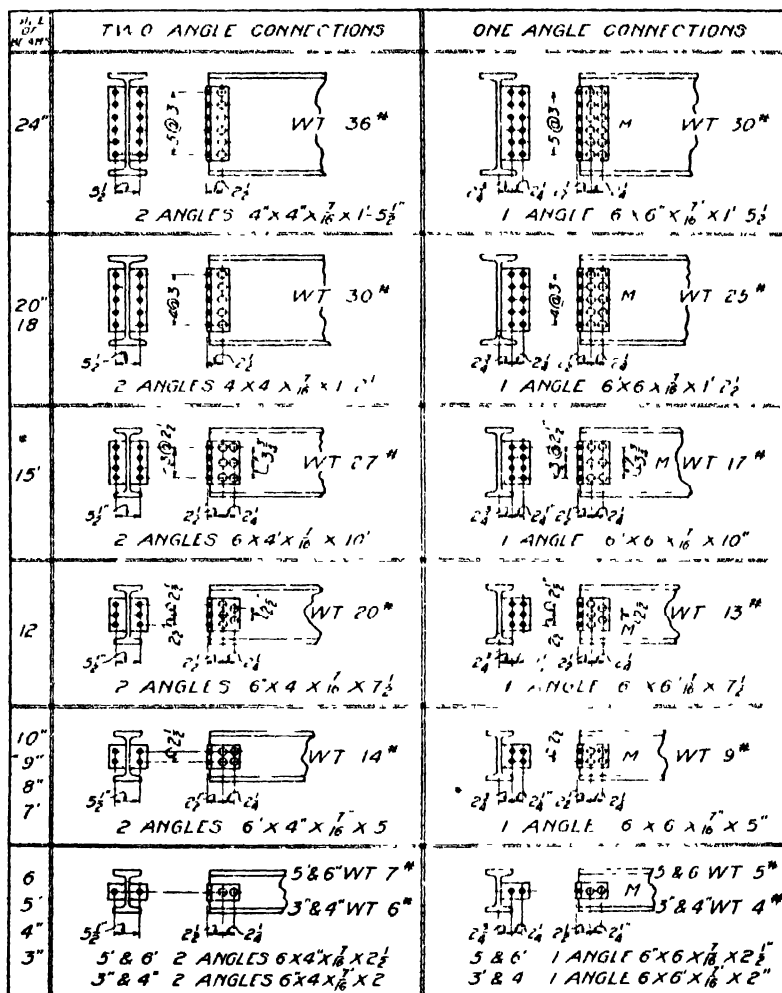 SIZE OF BEAMS
TWO ANGLE CONNECTIONS
ONE ANGLE CONNECTIONS
24"
5@3
WT 36#
5½"
2½"
2 ANGLES 4"x4"x7/16"x1'-5½"
5@3
M
WT 30#
2¾
2¼
2½
2¼
1 ANGLE 6x6"x7/16"x1' 5½
20"
18
4@3
WT 30#
5½"
2½
2 ANGLES 4x4x7/16x1 2½'
4@3
M WT 25#
2¾
2¼
2½
2¼
1 ANGLE 6'x6x7/16x1' 2½
15'
3@2½
WT 27#
5½"
2½
2¼
2 ANGLES 6x4'x7/16x10'
3@2½
M WT 17#
2¾
2¼
2½
2¼
1 ANGLE 6'x6x7/16x10"
12
2½
WT 20#
5½"
2½
2¼
2 ANGLES 6"x4x7/16x7½
2½
M
WT 13#
2¾
2¼
1 ANGLE 6 x6'7/16x7½
10"
9"
8"
7'
2½
WT 14#
5½"
2½
2¼
2 ANGLES 6'x4"x7/16"x5
2½
M WT 9#
2¾
2¼"
2½
2¼
1 ANGLE 6x6x7/16"x5"
6
5'
4"
3"
5'&6" WT 7#
3"&4" WT 6#
5½"
2½
2¼
5'&6' 2 ANGLES 6x4"x7/16x2½
3"&4" 2 ANGLES 6"x4x7/16'x2
5&6 WT 5#
M
3"&4" WT 4#
2¾
2¼
2½
2¼"
5&6' 1 ANGLE 6"x6x7/16x2½"
3'&4 1 ANGLE 6x6'x7/16'x2"